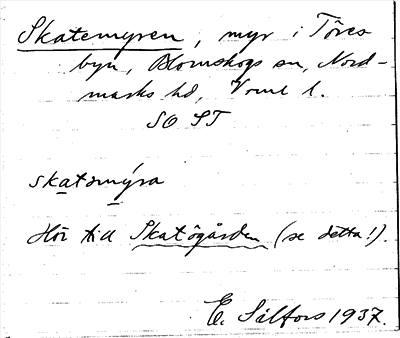 Skatemyren, myr i Töres
byn, Blomskogs sn, Nord-
marks hd, Vrml l.
SO ST
skatəmýra
Hör till Skatôgården (se detta!).
E. Sälfors 1937.